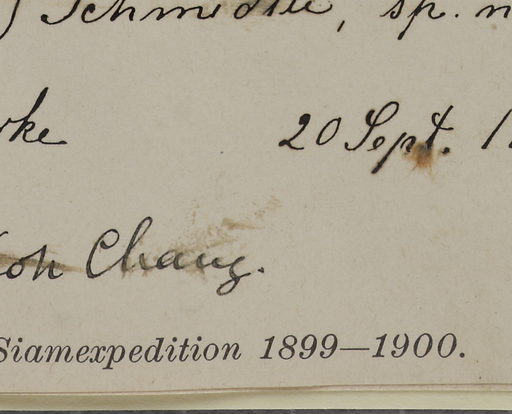 ) Schmidle, sp. n
rke
20 Sept. 1
Koh Chang.
Siamexpedition 1899—1900.